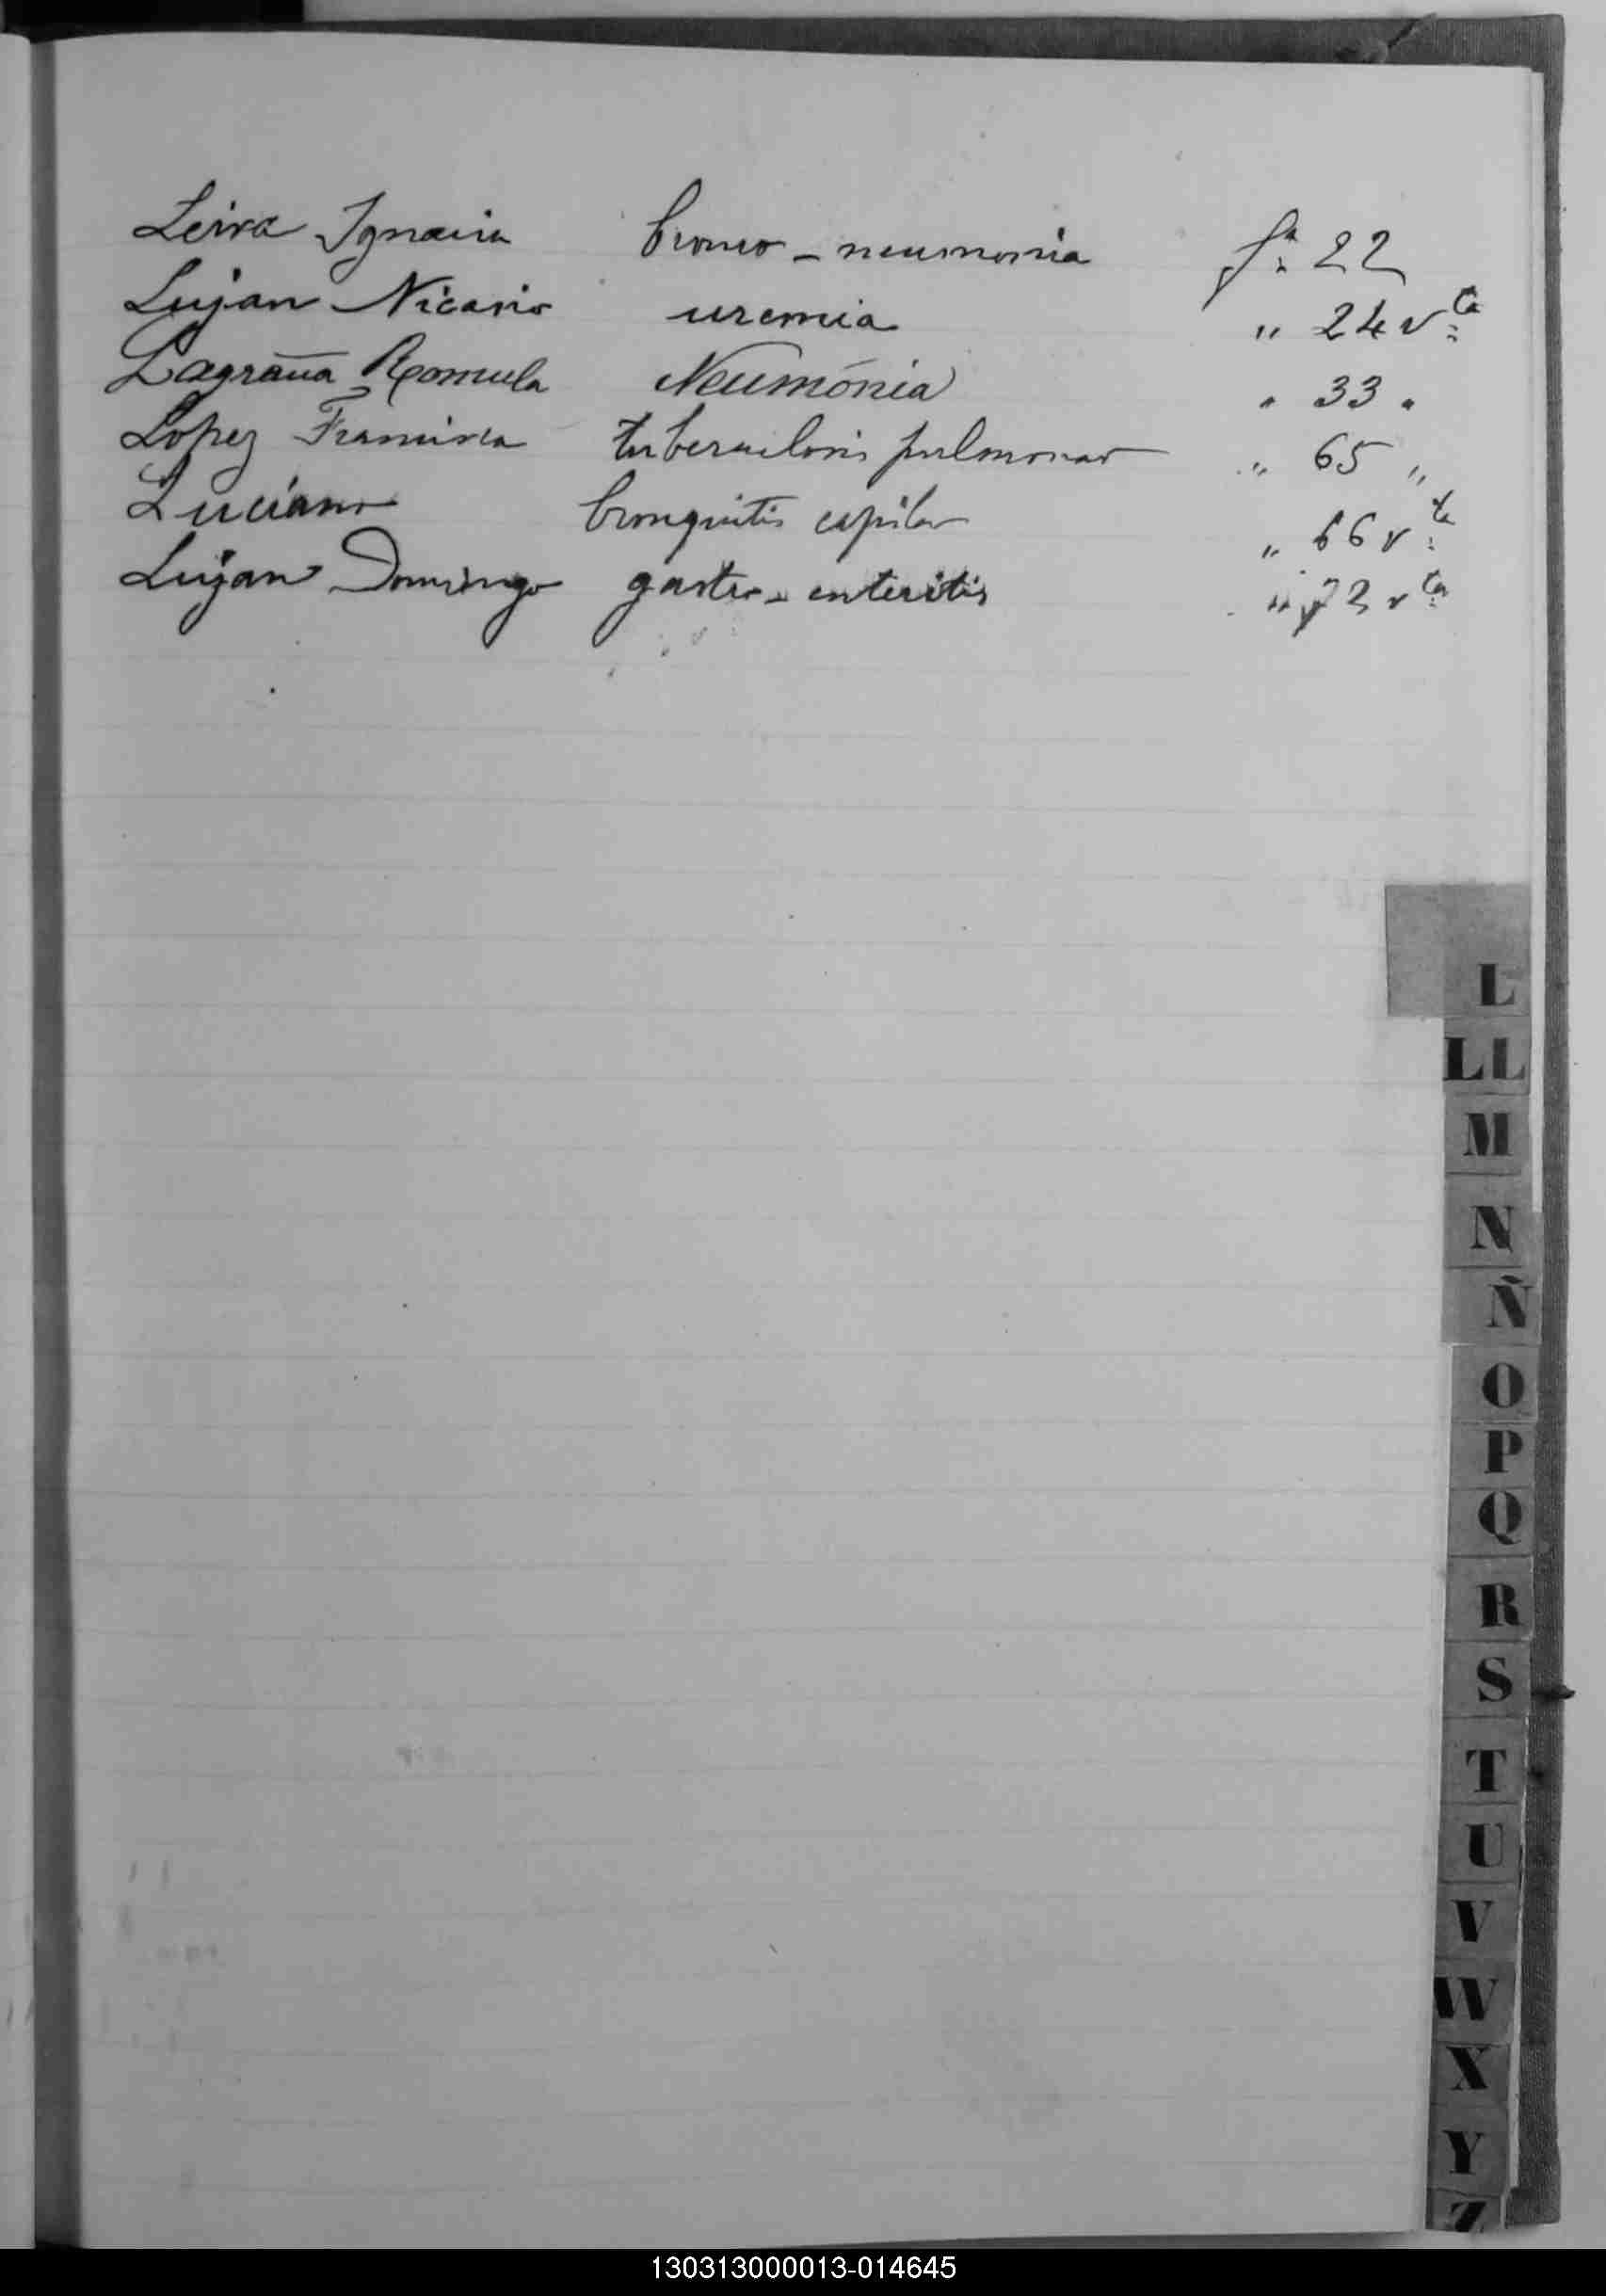 Leiva Ignacia bronco - neumonia fª 22
Lujan Nicario uremia " 24 vta
Lagraña Romula Neumónia " 33 "
Lopez Francisca tuberculosis pulmonar " 65 "
Luciano bronquitis capilar " 66 vta
Lujan Domingo gastro - enteritis " 73 vta
L
LL
M
N
Ñ
O
P
Q
R
S
T
U
V
W
X
Y
Z
130313000013-014645